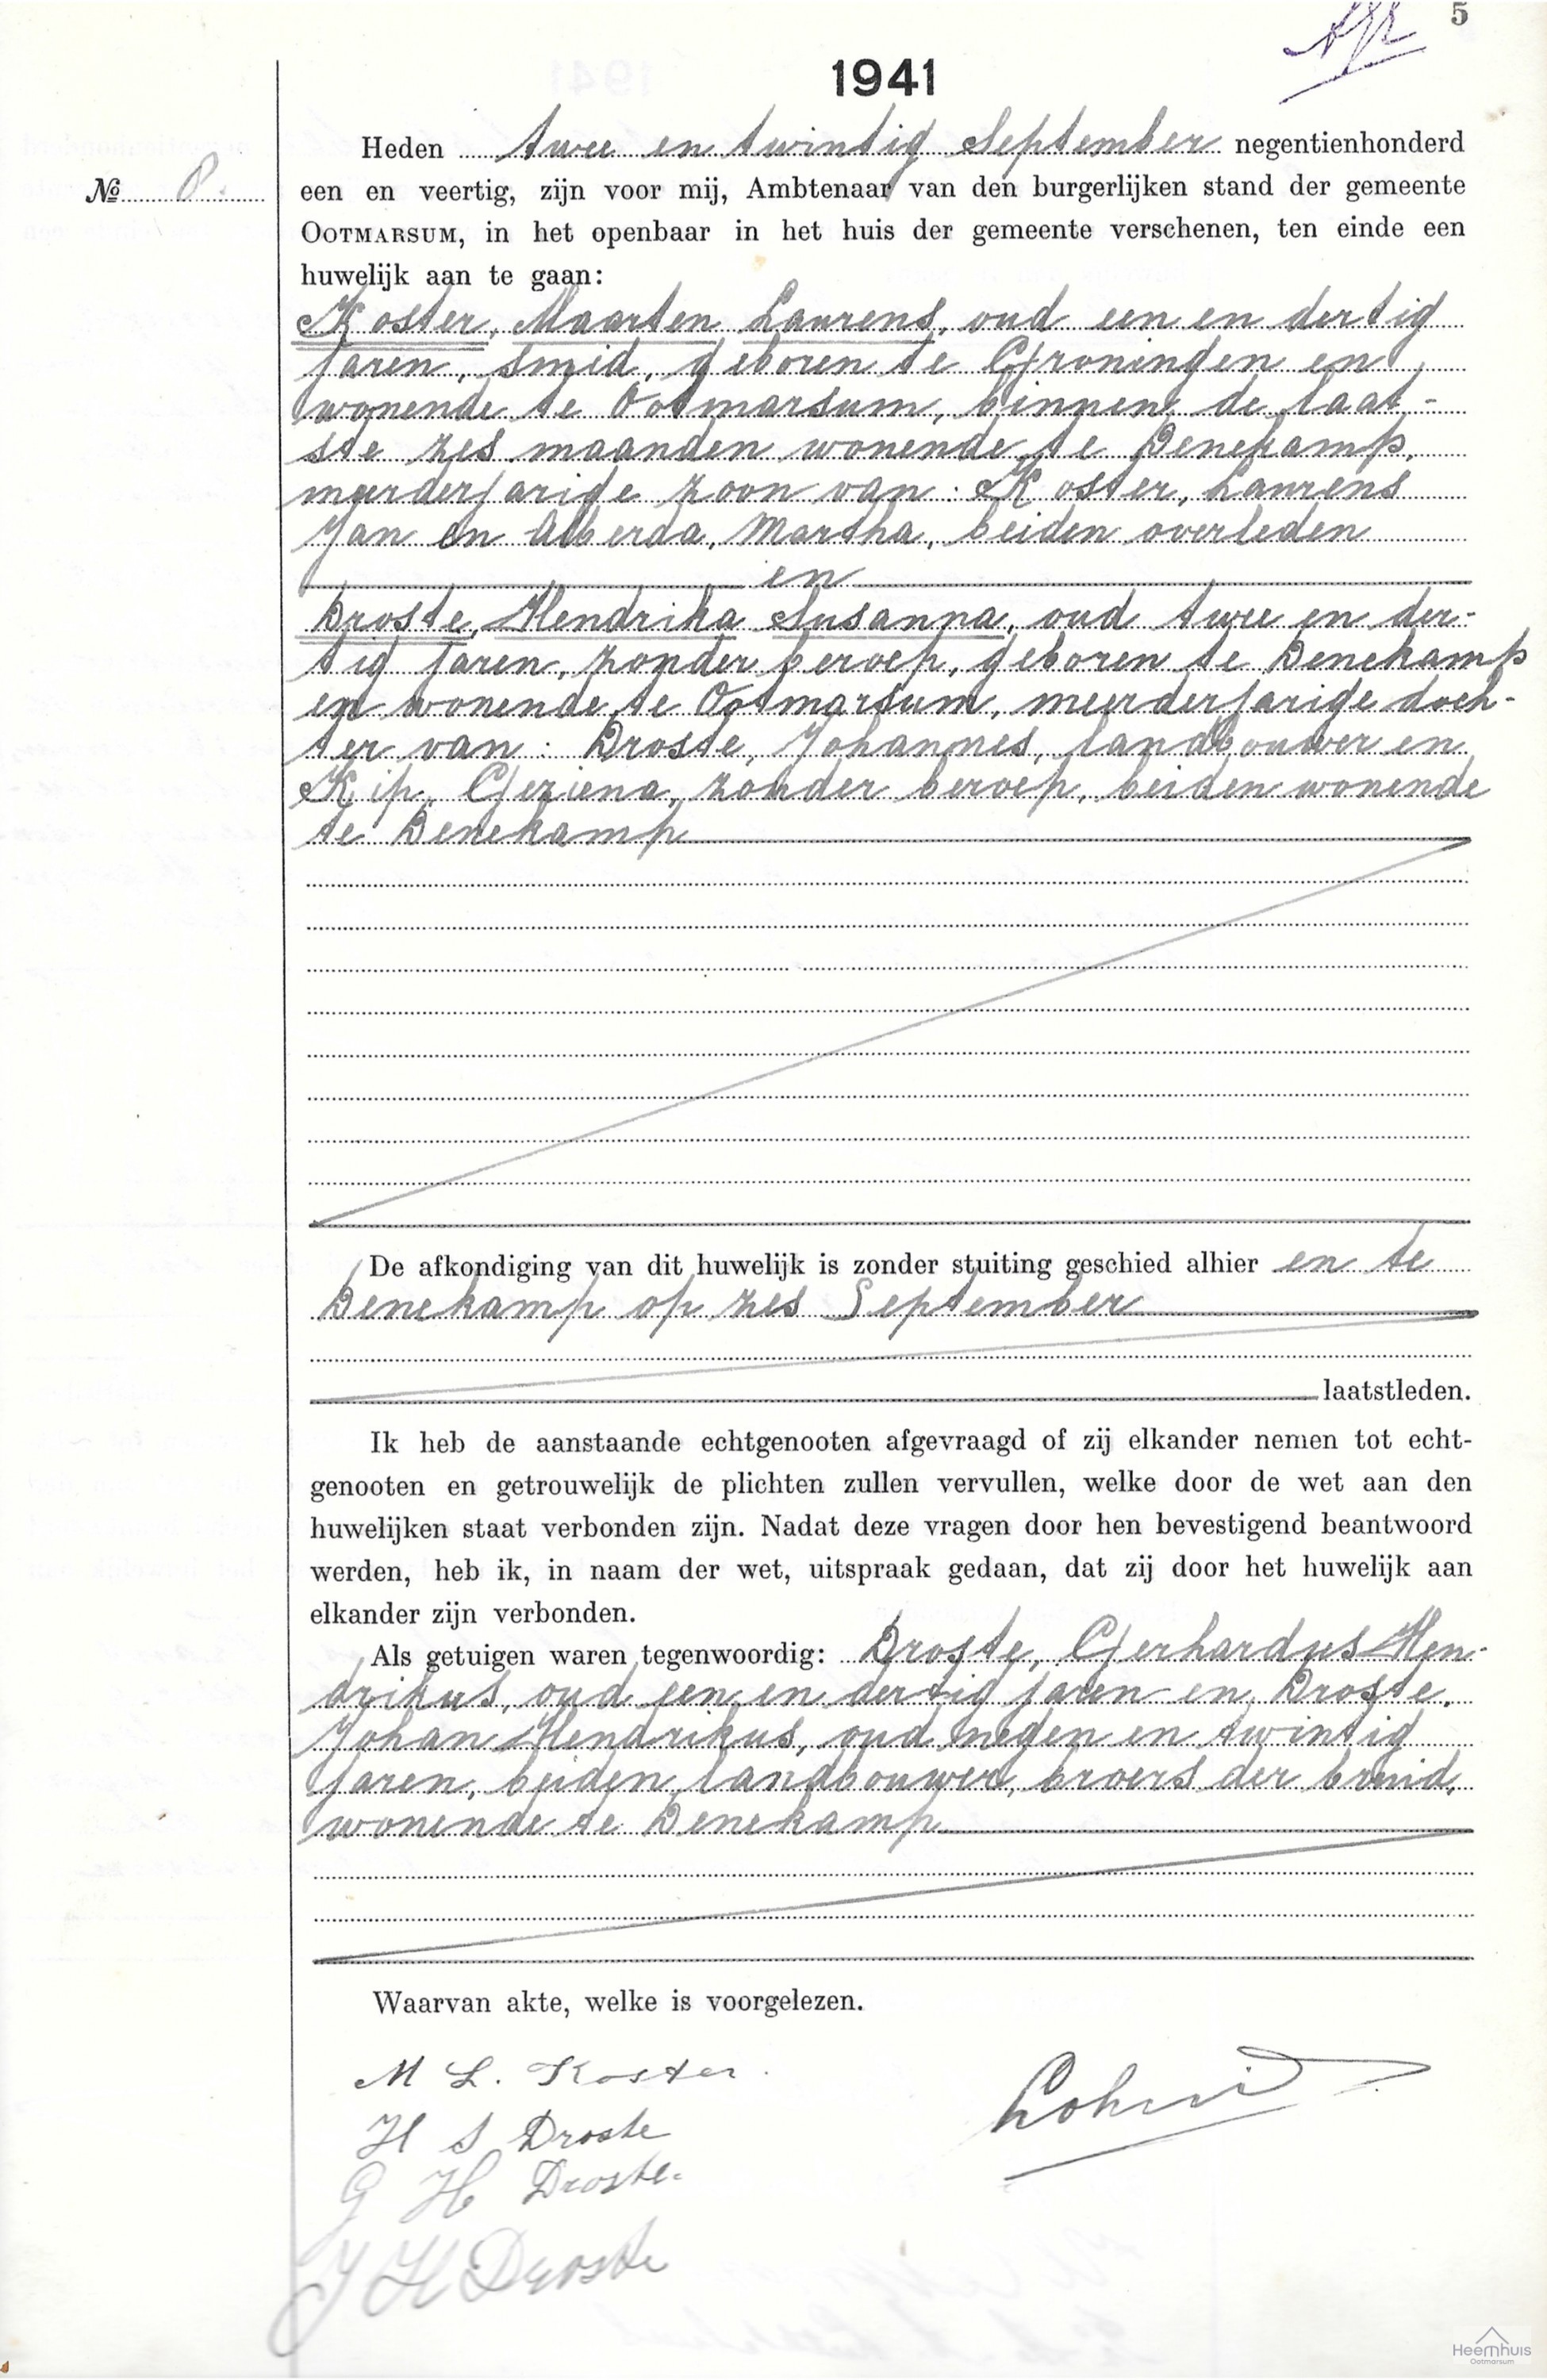 5
1941
Heden twee en twintig September negentienhonderd
№ 8.
een en veertig, zijn voor mij, Ambtenaar van den burgerlijken stand der gemeente
OOTMARSUM, in het openbaar in het huis der gemeente verschenen, ten einde een
huwelijk aan te gaan:
Koster, Maarten Laurens, oud een en dertig
jaren, smid, geboren te Groningen en
wonende te Ootmarsum, binnen de laat-
ste zes maanden wonende te Denekamp,
meerderjarige zoon van: Koster, Laurens
Jan en Alberda, Martha, beiden overleden
en
Droste, Hendrika Susanna, oud twee en der-
tig jaren, zonder beroep, geboren te Denekamp
en wonende te Ootmarsum, meerderjarige doch-
ter van: Droste, Johannes, landbouwer en
Kip, Geziena, zonder beroep, beiden wonende
te Denekamp
De afkondiging van dit huwelijk is zonder stuiting geschied alhier en te
Denekamp op zes September
laatstleden.
Ik heb de aanstaande echtgenooten afgevraagd of zij elkander nemen tot echt-
genooten en getrouwelijk de plichten zullen vervullen, welke door de wet aan den
huwelijken staat verbonden zijn. Nadat deze vragen door hen bevestigend beantwoord
werden, heb ik, in naam der wet, uitspraak gedaan, dat zij door het huwelijk aan
elkander zijn verbonden.
Als getuigen waren tegenwoordig: Droste, Gerhardus Hen-
drikus, oud een en dertig jaren en Droste,
Johan Hendrikus, oud negen en twintig
jaren, beiden landbouwer, broers der bruid,
wonende te Denekamp
Waarvan akte, welke is voorgelezen.
M L. Koster.
H S Droste
G H Droste.
J H Droste
Heemhuis
Ootmarsum